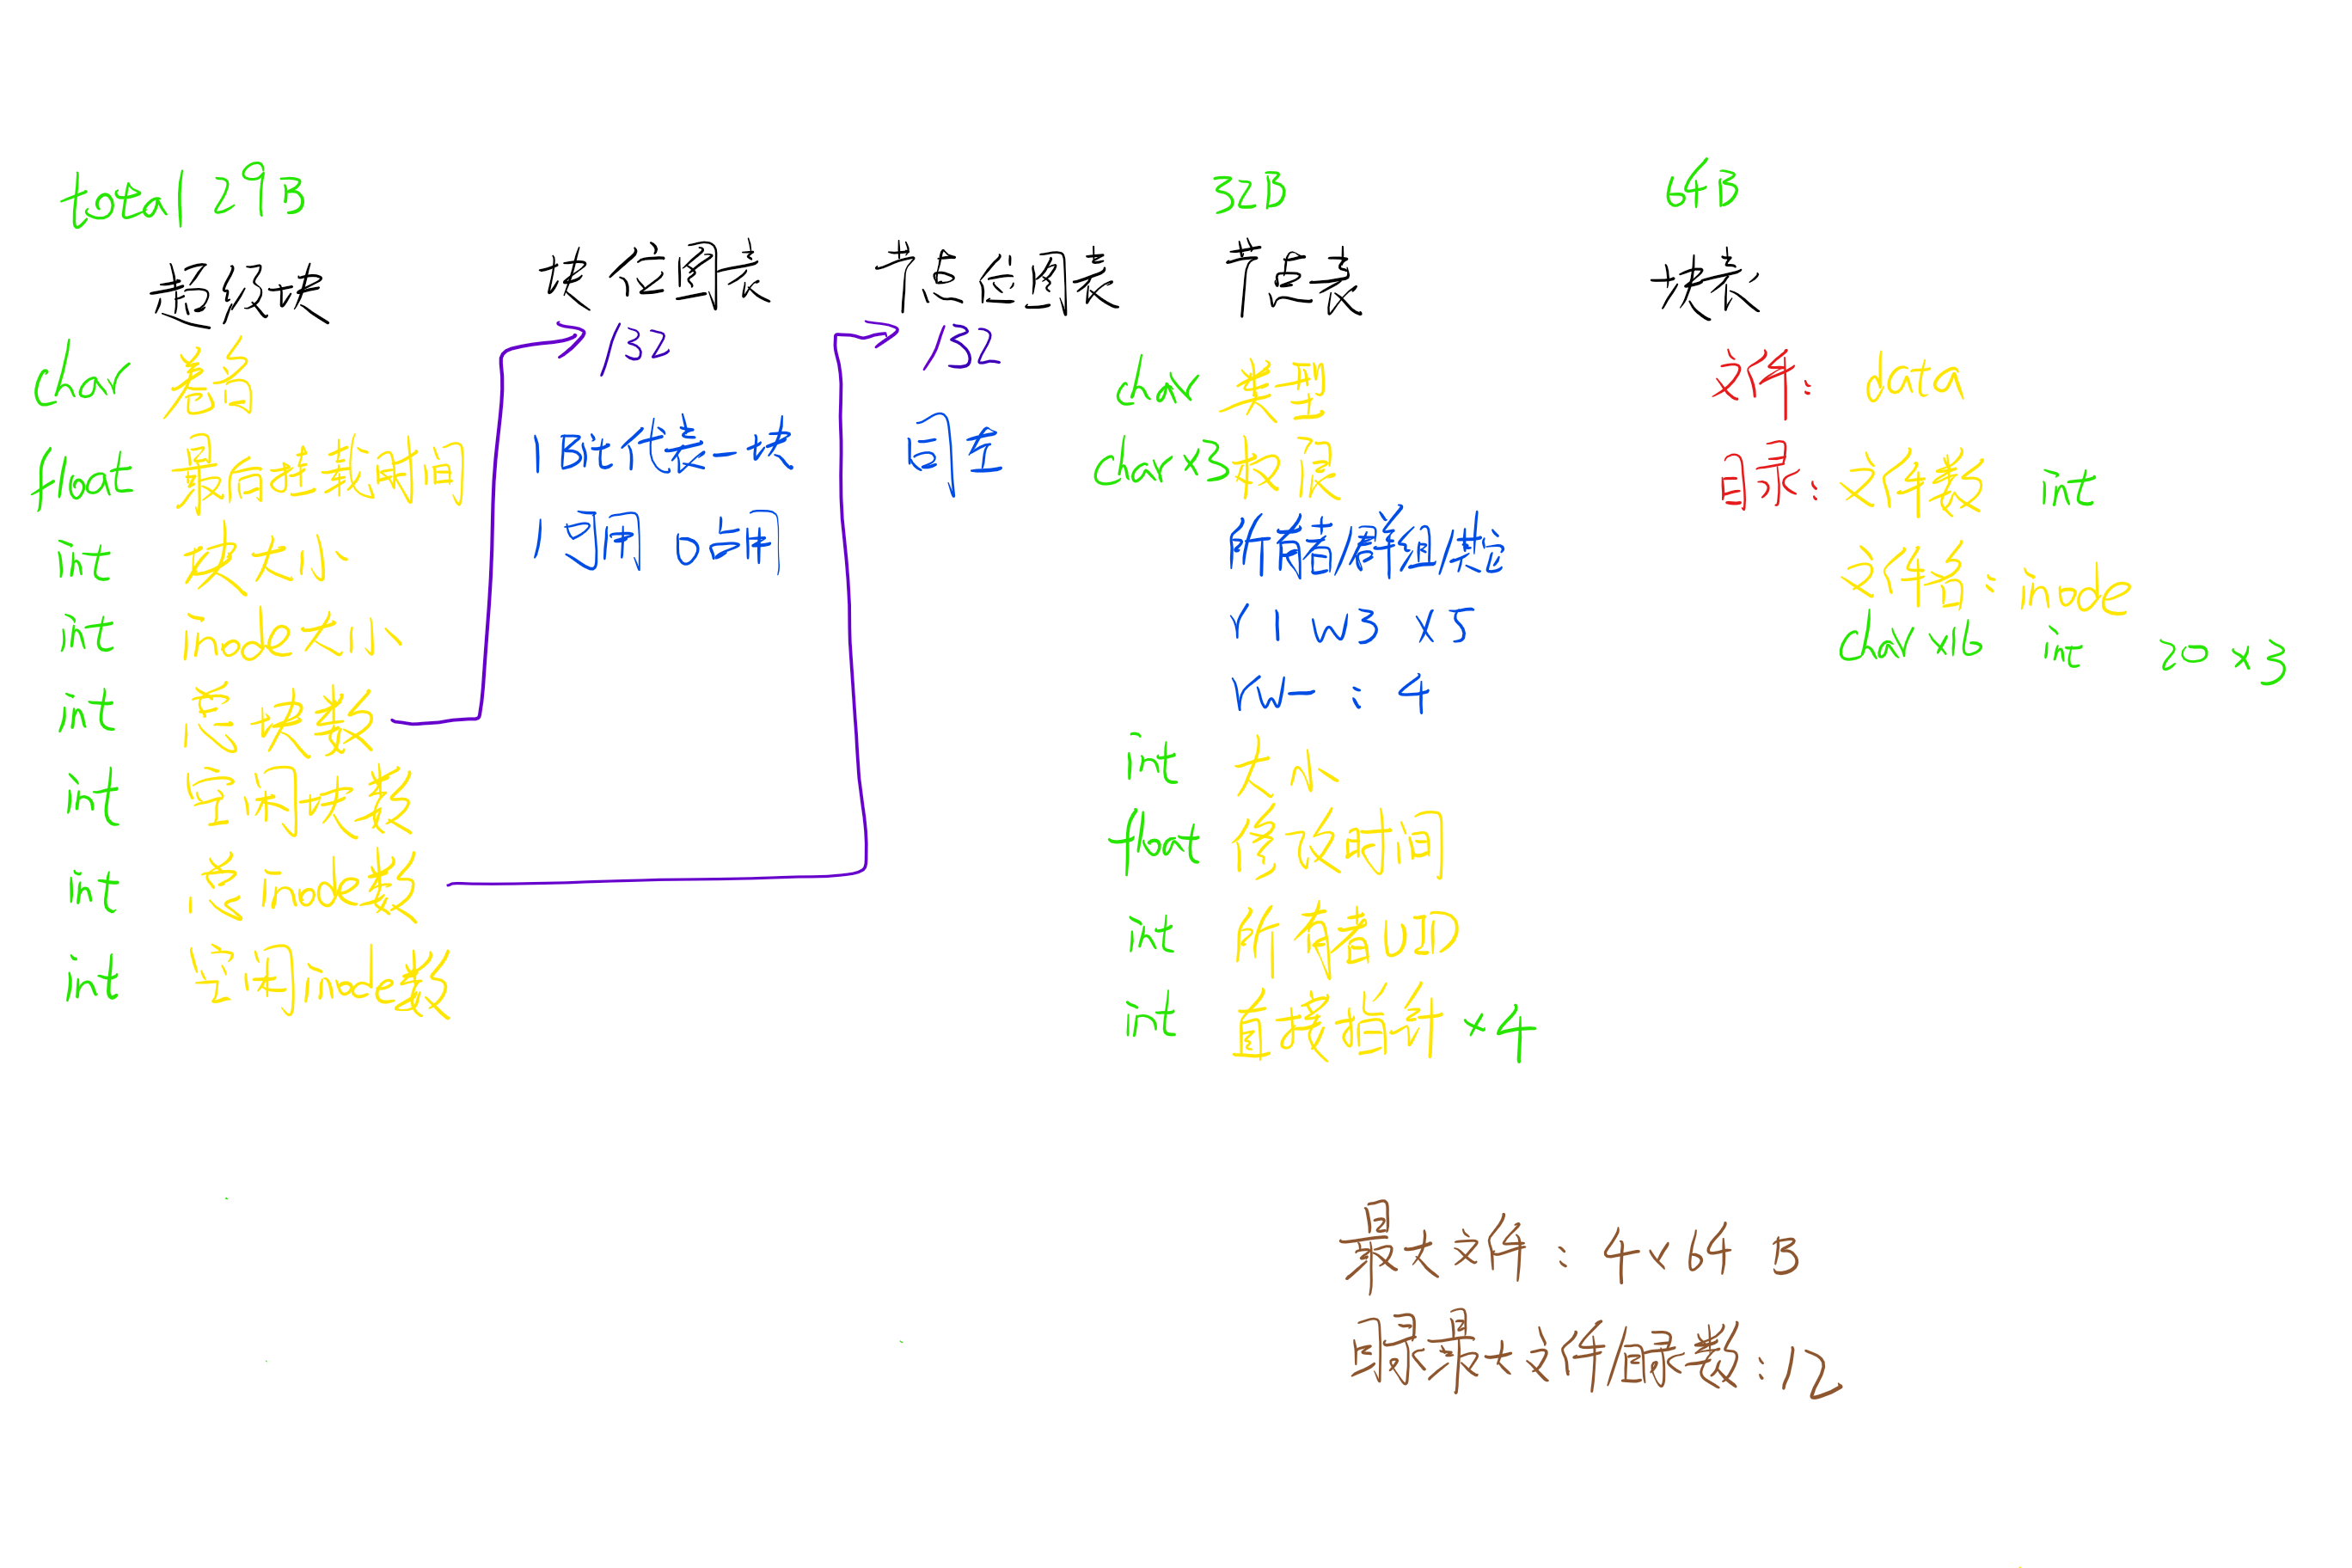 total 29B
超级块
char 卷名
float 最后挂载时间
int 块大小
int inode大小
int 总块数
int 空闲块数
int 总inode数
int 空闲inode数
块位图表
/32
1 Bit代表一块
1可用 0占用
节点位图表
/32
同左
32B
节点表
char 类型
char×3 权限
所有者/群组/其他
r1 w3 x5
rw- : 4
int 大小
float 修改时间
int 所有者UID
int 直接指针 ×4
64B
块表
文件: data
目录: 文件数 int
文件名 : inode
char×16 int 20×3
最大文件 : 4×64 B
目录最大文件/目录数 : 12